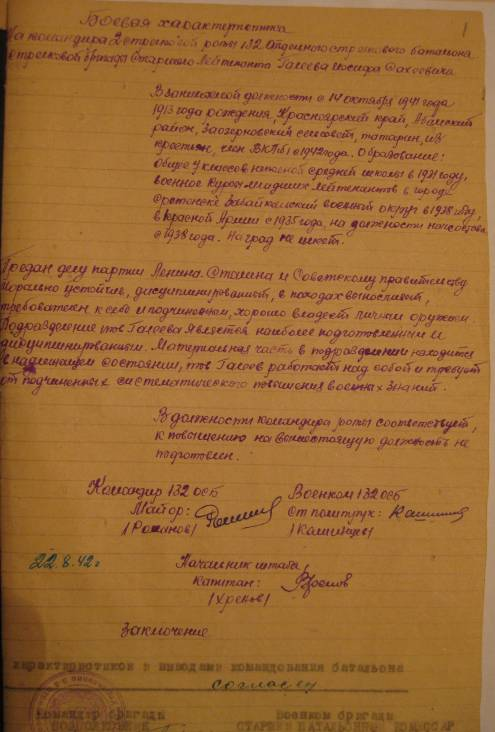 1
Боевая характеристика
На командира 2 стрелковой роты 132 Отдельного стрелкового батальона
стрелковой бригады Старшего Лейтенанта Галеева
В занимаемой должности с 14 октября 1941 года
1913 года рождения, Красноярский край, Абанский
район, Заозерновский сельсовет, татарин, из
крестьян, член ВКП(б) с 1942 года. Образование:
Общее 7 классов неполной средней школы в 1931 году,
военное Курсы младших лейтенантов в городе
Сретенске Забайкальский военный округ в 1938 году,
в Красной Армии с 1935 года, на должности начсостава
с 1938 года. Наград не имеет.
Предан делу партии Ленина Сталина и Советскому правительству
Морально устойчив, дисциплинированный, в походах вынослив,
требователен к себе и подчиненным, хорошо владеет личным оружием
Подразделение тов Галеева является наиболее подготовленным и
дисциплинированным. Материальная часть в подразделении находится
в надлежащем состоянии, тов Галеев работает над собой и требует
от подчиненных систематического повышения военных знаний.
В должности командира роты соответствует,
к повышению на вышестоящую должность не
подготовлен.
Командир 132 ОСБ Военком 132 ОСБ
Майор: Ст политрук:
/Романов/
22.8.42г Начальник штаба
Капитан:
/Хренов/
Заключение
характеристикой и выводами командования батальона
согласен
Командир бригады Военком бригады
ПОДПОЛКОВНИК СТАРШИЙ БАТАЛЬОННЫЙ КОМИССАР